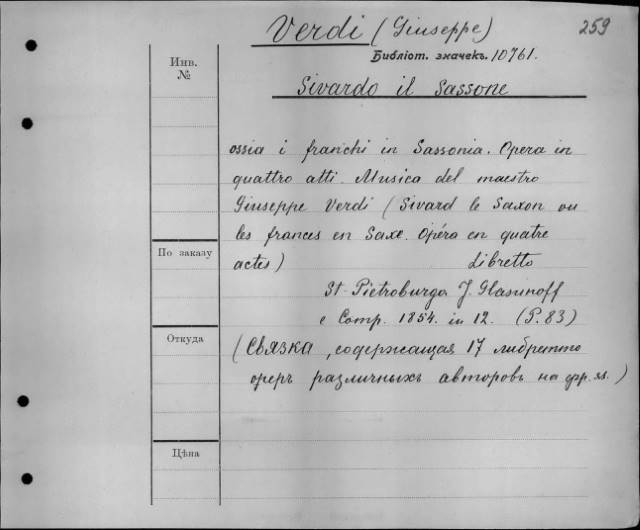 259
Verdi (Giuseppe)
Библіот. значекъ. 10761.
Инв.
№
Sivardo il Sassone
ossia i franchi in Sassonia. Opera in
quattro atti. Musica del maestro
Giuseppe Verdi (Sivard le Saxon ou
les francs en Saxe. Opéra en quatre
По заказу
actes) Libretto
St. Pietroburgo J. Glasunoff
e Comp. 1854. in 12. (P. 83)
Откуда
(Связка, содержащая 17 либретто
оперъ различныхъ авторовъ на фр. яз.)
Цѣна